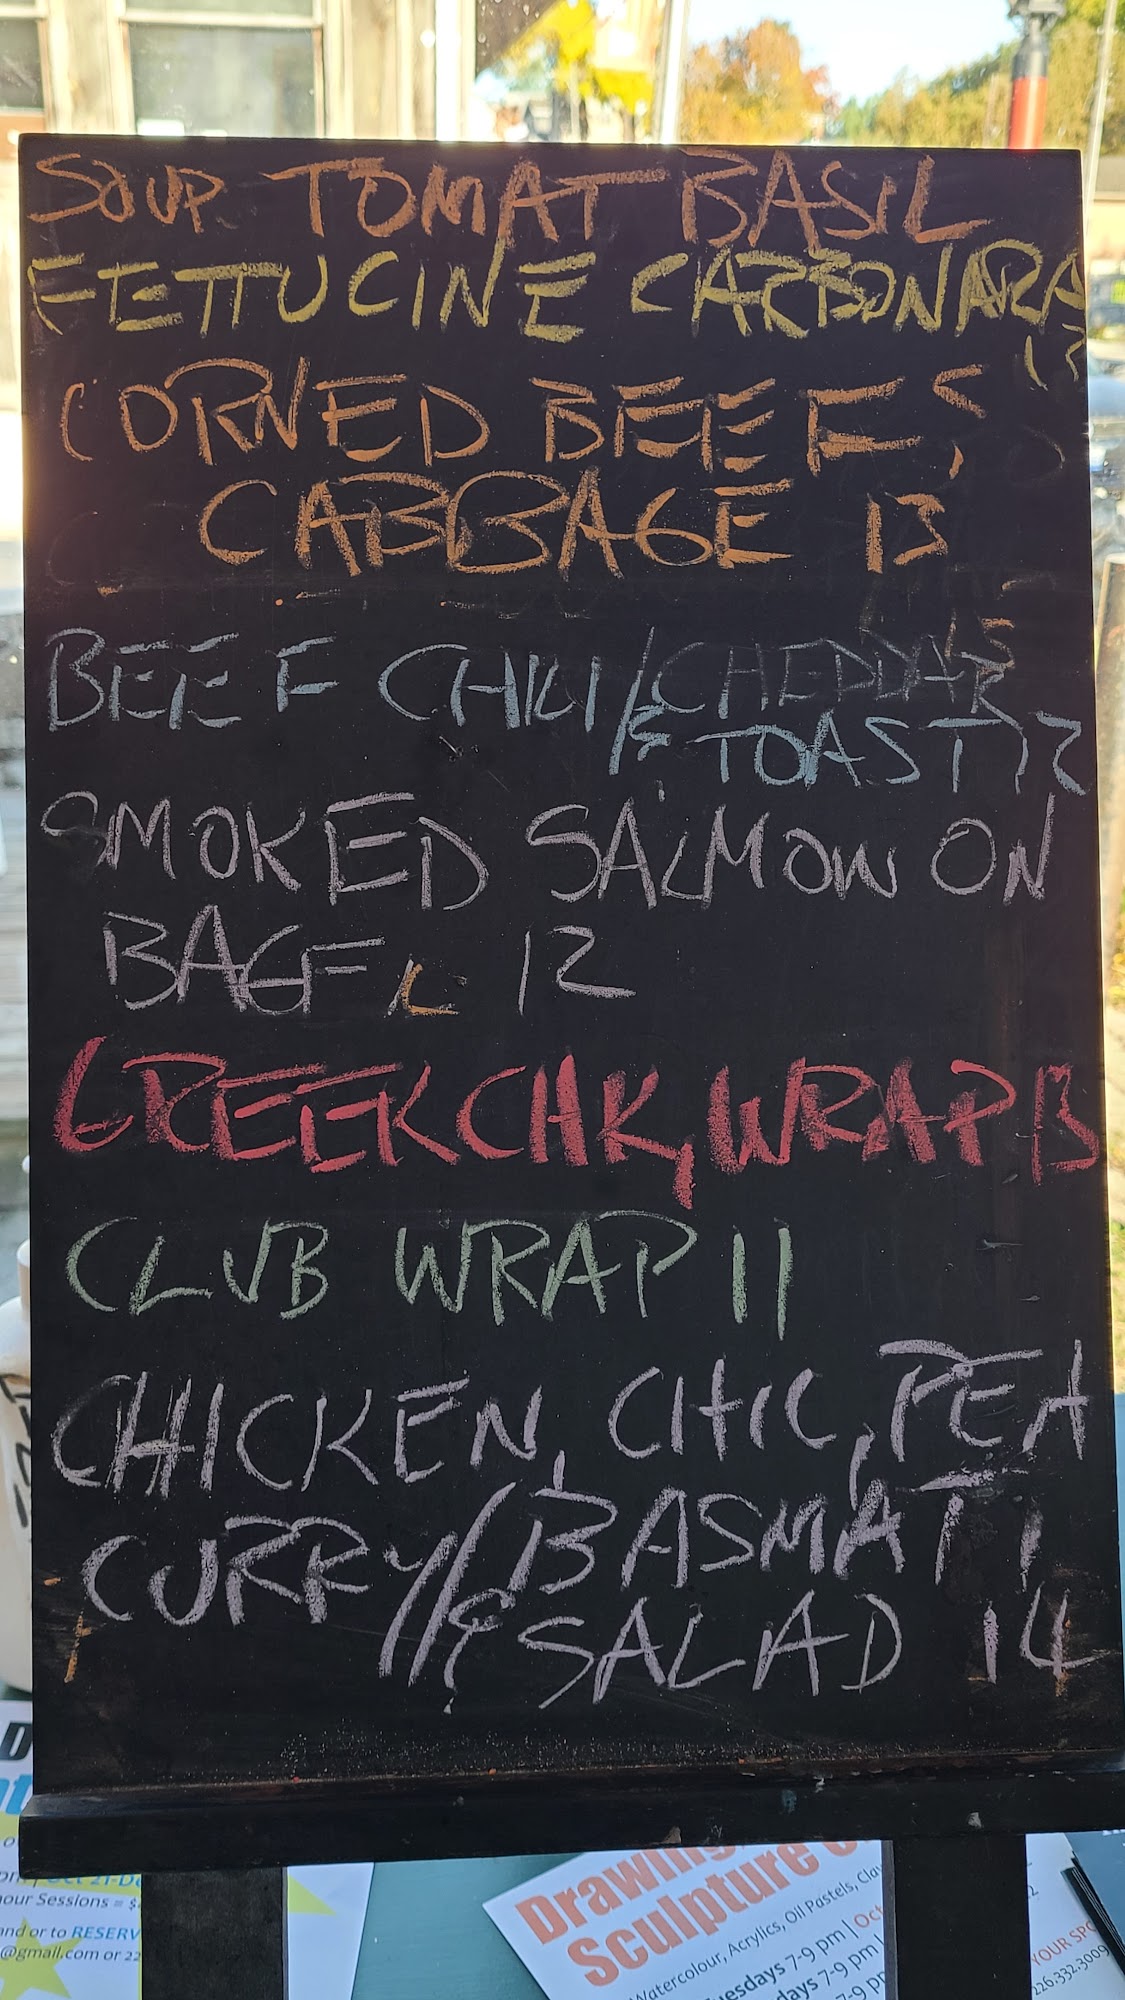 SOUP TOMAT BASIL
FETTUCINE CARBONARA
13
CORNED BEEF &
CABBAGE 13
BEEF CHILI / CHEDDAR
& TOAST 12
SMOKED SALMON ON
BAGEL 12
GREEK CHK, WRAP 13
CLUB WRAP 11
CHICKEN, CHIC, PEA
CURRY / BASMATI
& SALAD 14
Oct 21-D
hour Sessions = $
and or to RESERV
@gmail.com or 22
Drawing
Sculpture
Watercolour, Acrylics, Oil Pastels, Clay
uesdays 7-9 pm | Oct
days 7-9 pm |
7-9 pm
YOUR SPO
226.332.3009